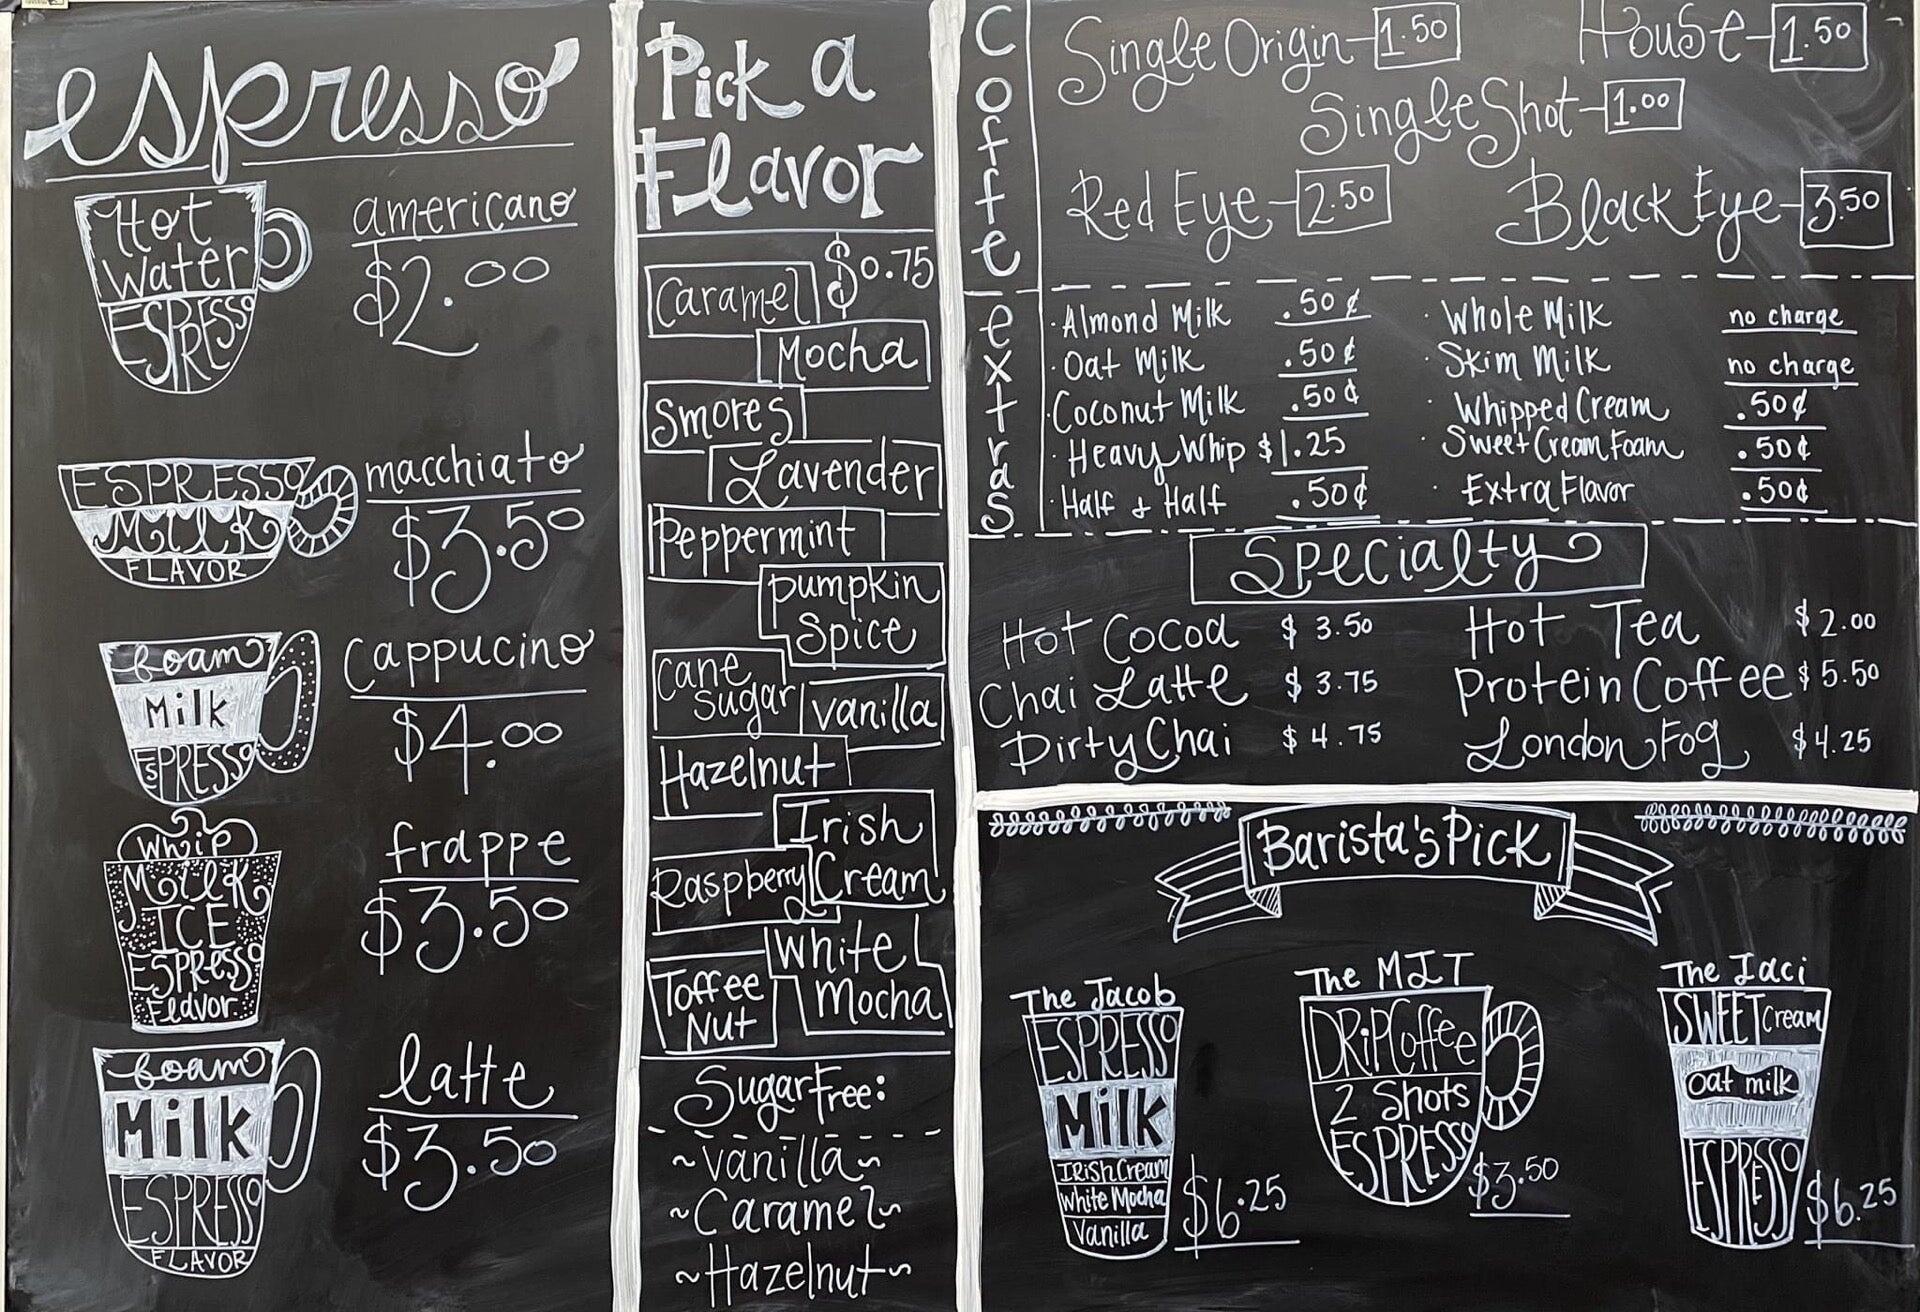 espresso
Hot
Water
ESPRESSO
americano
$2.00
ESPRESSO
Milk
FLAVOR
macchiato
$3.50
foam
Milk
ESPRESSO
cappucino
$4.00
Whip
Milk
ICE
ESPRESSO
Flavor
frappe
$3.50
foam
Milk
ESPRESSO
FLAVOR
latte
$3.50
Pick a
Flavor
$0.75
Caramel
Mocha
Smores
Lavender
Peppermint
pumpkin
Spice
Cane
Sugar
vanilla
Hazelnut
Irish
Cream
Raspberry
White
Mocha
Toffee
Nut
Sugar Free:
~vanilla~
~Caramel~
~Hazelnut~
Coffee
Single Origin-1.50
House-1.50
Single Shot-1.00
Red Eye-2.50
Black Eye-3.50
extras
· Almond Milk .50¢
· Oat Milk .50¢
· Coconut Milk .50¢
· Heavy Whip $1.25
· Half & Half .50¢
· Whole Milk no charge
· Skim Milk no charge
· Whipped Cream .50¢
· Sweet Cream Foam .50¢
· Extra Flavor .50¢
Specialty
Hot Cocoa $3.50
Chai Latte $3.75
Dirty Chai $4.75
Hot Tea $2.00
Protein Coffee $5.50
London Fog $4.25
Barista's Pick
The Jacob
ESPRESSO
Milk
IRish Cream
White Mocha
Vanilla
$6.25
The MJT
DRiP Coffee
2 Shots
ESPRESSO
$3.50
The Jaci
SWEET Cream
oat milk
ESPRESSO
$6.25